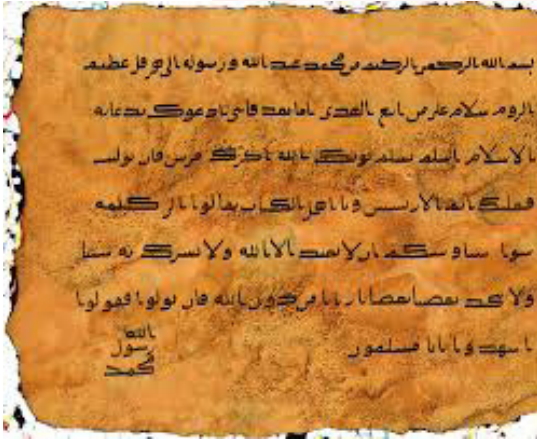 بسم الله الرحمن الرحيم من محمد عبد الله ورسوله الى هرقل عظيم
الروم سلام على من اتبع الهدى اما بعد فانى ادعوك بدعاية
الاسلام اسلم تسلم يوتك الله اجرك مرتين فان توليت
فعليك اثم الاريسيين ويا اهل الكتاب تعالوا الى كلمة
سوا بيننا وبينكم ان لا نعبد الا الله ولا نشرك به شيئا
ولا يتخذ بعضنا بعضا اربابا من دون الله فان تولوا فقولوا
اشهدوا بانا مسلمون
الله
رسول
محمد